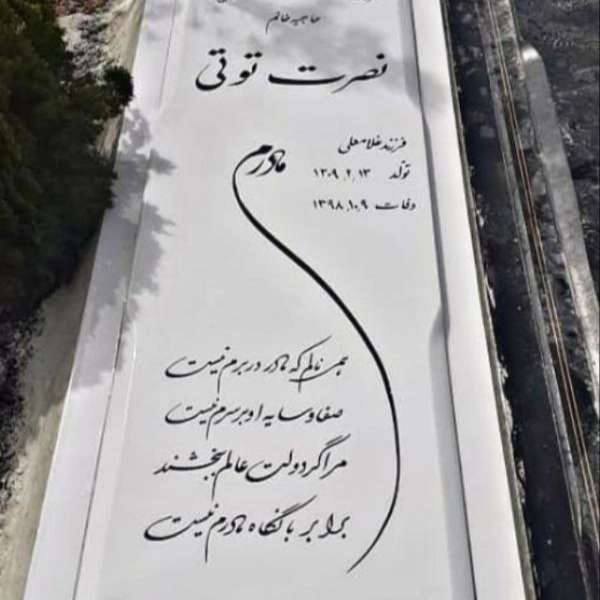 حاجیه خانم
نصرت توتی
فرزند غلامعلی
تولد ۱۳۰۹٫۲٫۱۳
وفات ۱۳۹۸٫۱۰٫۹
مادرم
همی نالم که مادر در برم نیست
صفا و سایه او بر سرم نیست
مرا گر دولت عالم ببخشند
برابر با نگاه مادرم نیست